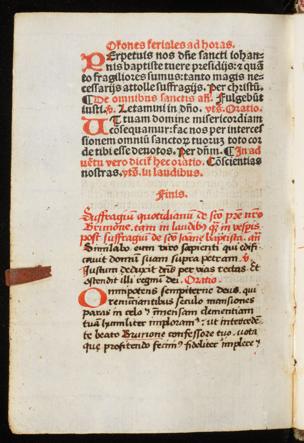 Orones feriales ad horas.
Perpetuis nos dñe sancti iohan-
nis baptiste tuere presidijs: ⁊ quã
to fragiliores sumus: tanto magis ne-
cessarijs attolle suffragijs. Per christũ
¶ De omnibus sanctis añ. Fulgebũt
iusti. v̾. Letamini in dño. vts̃. Oratio.
Ut tuam domine misericordiam
cõsequamur: fac nos per interces
sionem omniũ sanctoꝝ tuoꝝ toto cor
de tibi esse deuotos. Per dñm. ¶ In ad
uẽtu vero dicit̃ hec oratio. Cõscientias
nostras. vts̃. in laudibus.
Finis.
Suffragiũ quotidianũ de scõ pre nrõ
Brunone, tam in laudibꝰ quã in vespis
post suffragiũ de scõ Joãne baptista. añ
Similabo eum viro sapienti qui difi-
cauit domũ suam supra petram. v̾.
Justum deduxit dñs per vias rectas. Et
ostendit illi regnũ dei. Oratio.
Omnipotens sempiterne deus, qui
renunciantibus seculo mansiones
paras in celo: ĩmensam clementiam
tuã humiliter imploramꝰ: ut intercedẽ-
te beato Brunone confessore tuo, vota
que profitendo fecimꝰ fideliter implere